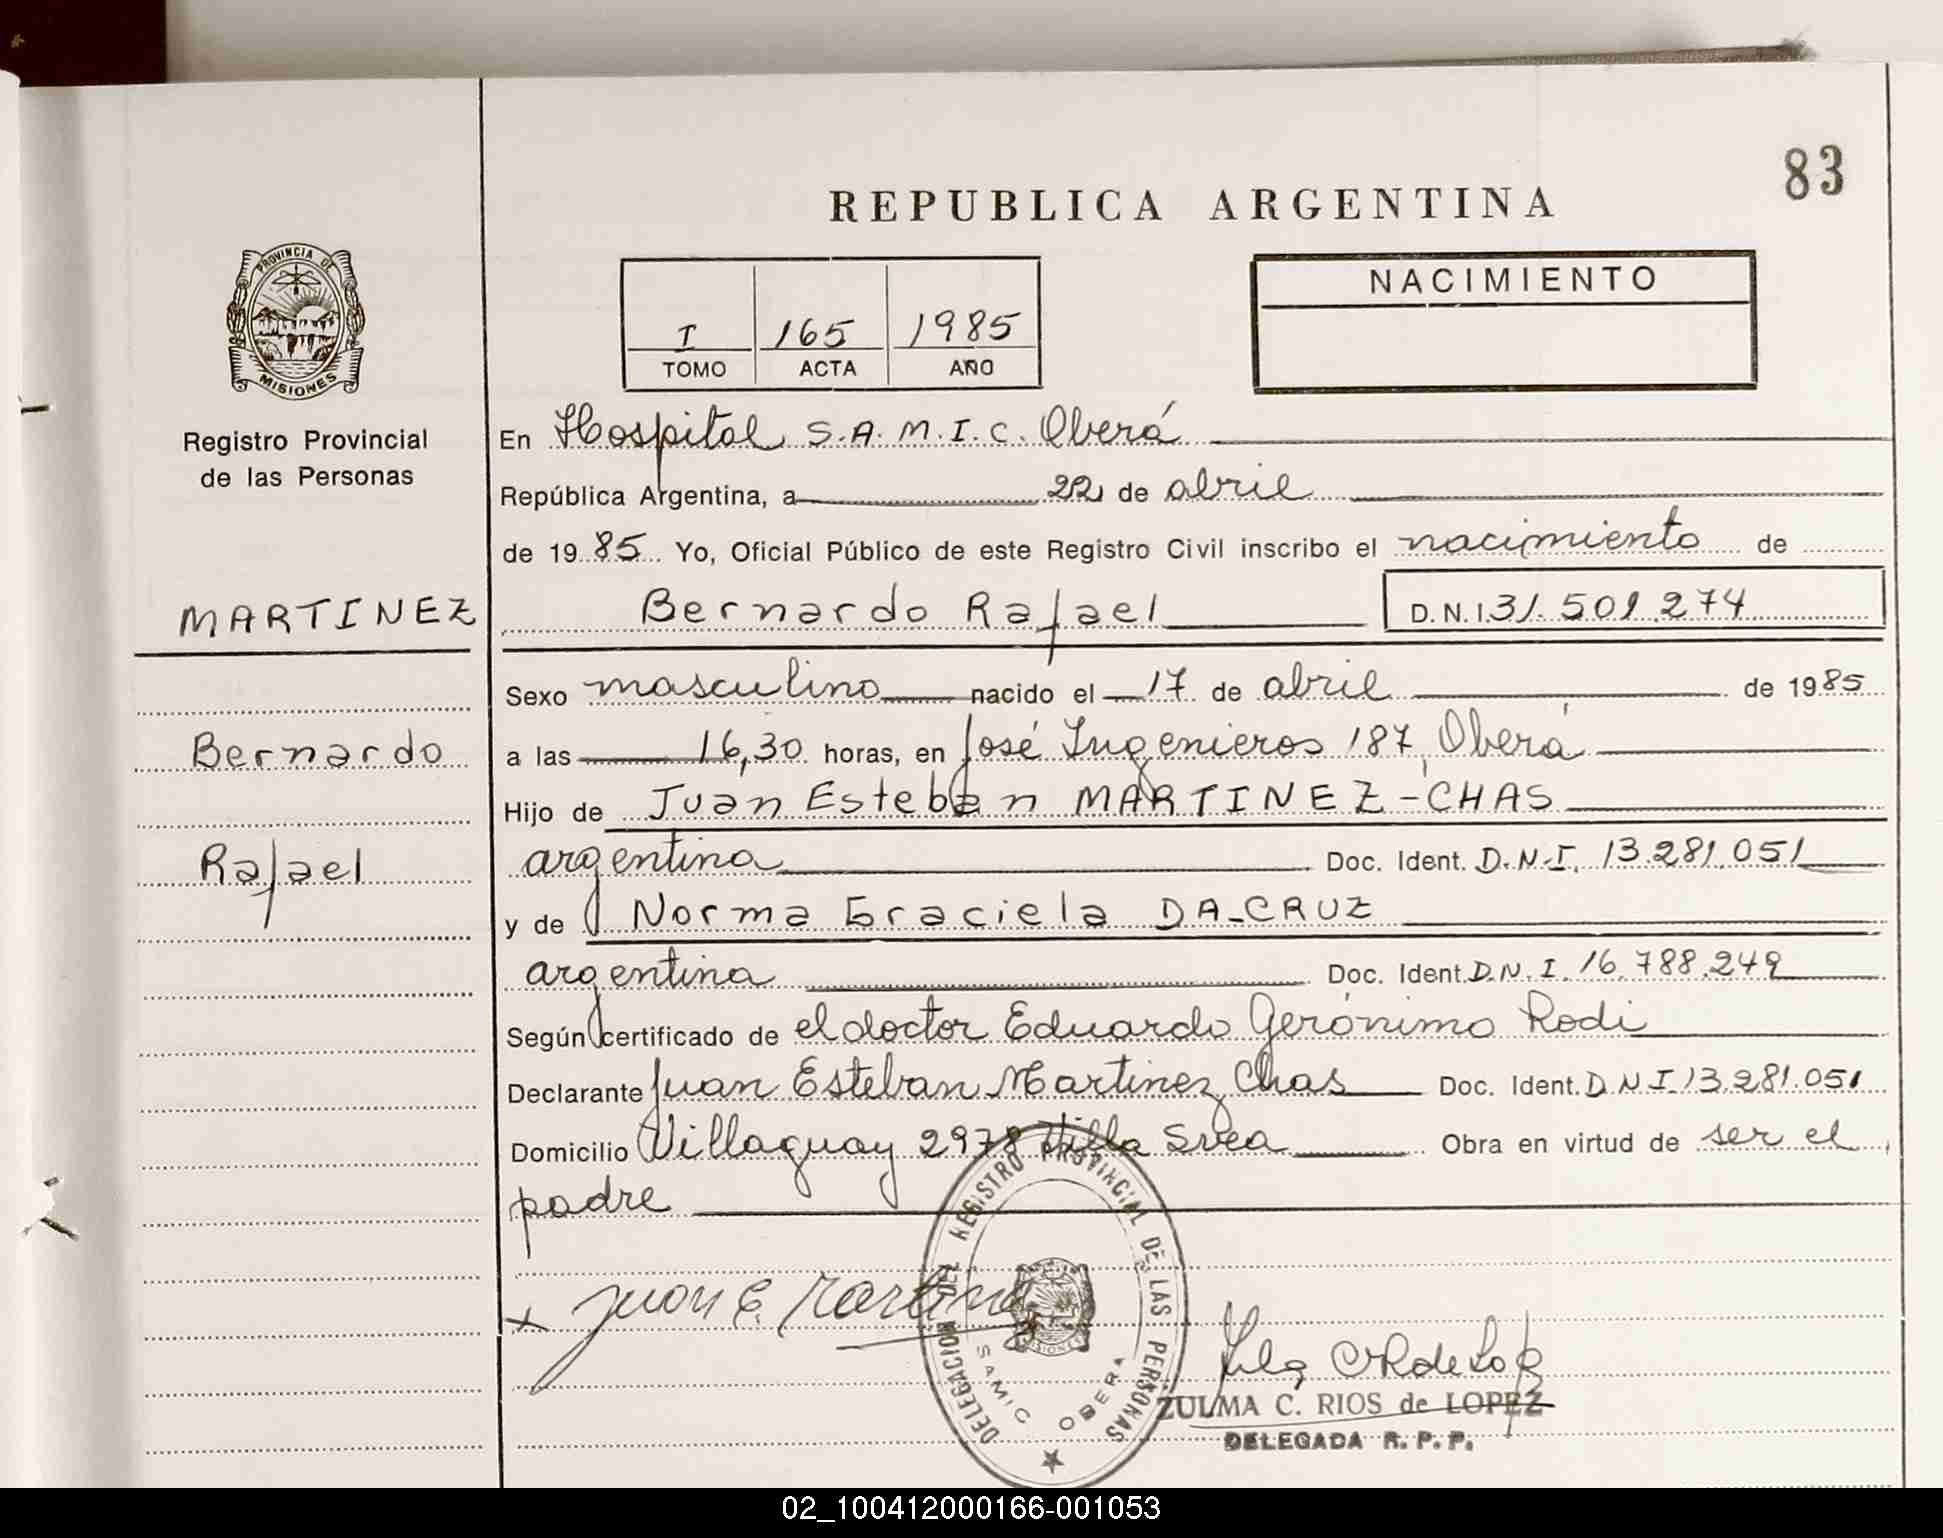 83
REPUBLICA ARGENTINA
PROVINCIA DE
MISIONES
Registro Provincial
de las Personas
I 165 1985
TOMO ACTA AÑO
NACIMIENTO
En Hospital S.A.M.I.C. Oberá
República Argentina, a 22 de abril
de 19 85 Yo, Oficial Público de este Registro Civil inscribo el nacimiento de
MARTINEZ
Bernardo Rafael D.N.I. 31.501.274
Sexo masculino nacido el 17 de abril de 1985
Bernardo
a las 16,30 horas, en José Ingenieros 187, Oberá
Hijo de Juan Esteban MARTINEZ-CHAS
Rafael
argentina Doc. Ident. D.N.I. 13.281.051
y de Norma Graciela DA-CRUZ
argentina Doc. Ident. D.N.I. 16.788.249
Según certificado de el doctor Eduardo Gerónimo Rodi
Declarante Juan Esteban Martinez Chas Doc. Ident. D N I 13.281.051
Domicilio Villaguay 2978 Villa Svea Obra en virtud de ser el
padre
x Juan E. Martinez
DELEGACION DEL REGISTRO PROVINCIAL DE LAS PERSONAS
MISIONES
SAMIC OBERA
ZULMA C. RIOS de LOPEZ
DELEGADA R. P. P.
02_100412000166-001053